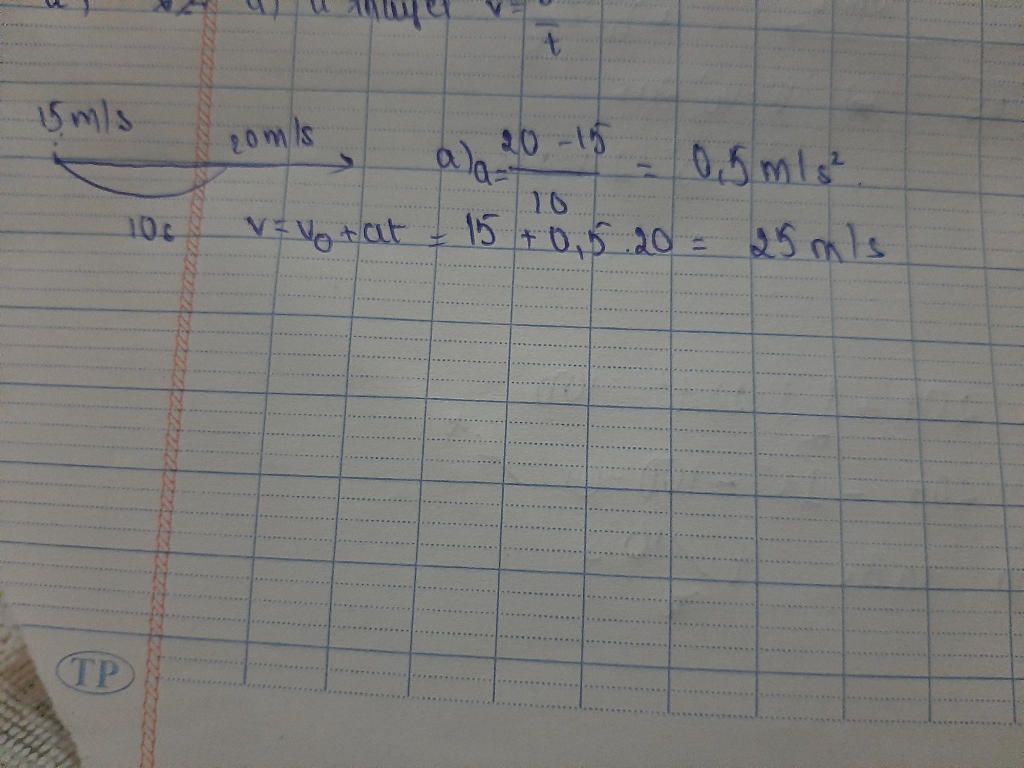 v = / t
15 m/s
20 m/s
a) a = 20 - 15 / 10 = 0,5 m/s²
10s v = v₀ + at = 15 + 0,5 . 20 = 25 m/s
TP